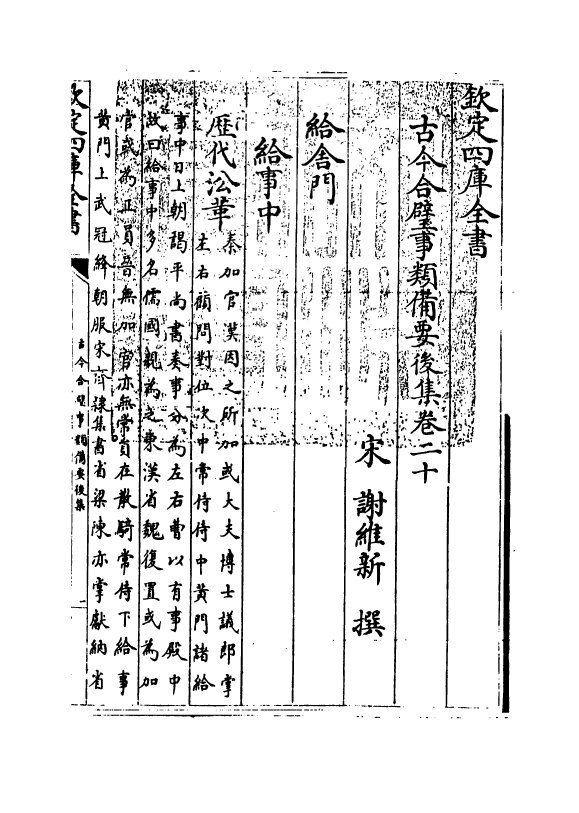 欽定四庫全書
古今合璧事類備要後集卷二十
宋 謝維新 撰
給舍門
給事中
歷代沿革
秦加官漢因之所加或大夫博士議郎掌
左右顧問對位次中常侍侍中黃門諸給
事中日上朝謁平尚書奏事分為左右曹以有事殿中
故曰給事中多名儒國親為之東漢省魏復置或為加
官或為正員晉無加官亦無常員在散騎常侍下給事
黃門上武冠絳朝服宋齊隸集書省梁陳亦掌獻納省
欽定四庫全書
古今合璧事類備要後集
一